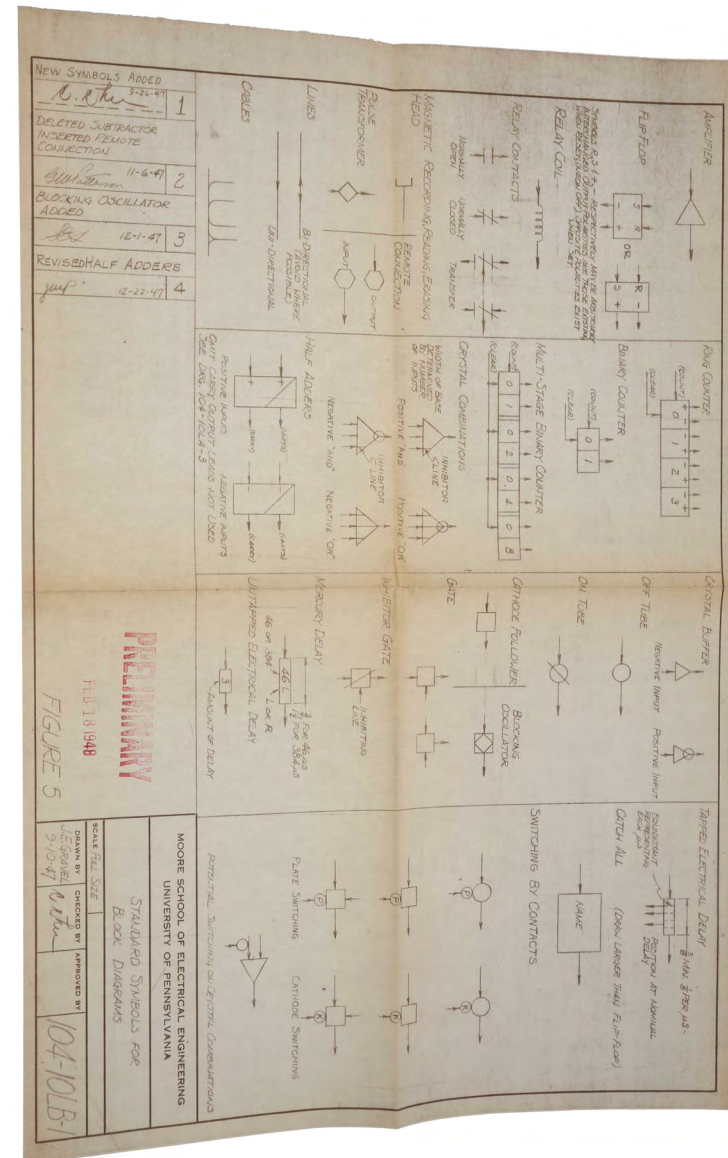 NEW SYMBOLS ADDED
9-26-47
1
DELETED SUBTRACTOR
INSERTED REMOTE
CONNECTION
11-6-47
2
BLOCKING OSCILLATOR
ADDED
12-1-47
3
REVISED HALF ADDERS
12-22-47
4
AMPLIFIER
FLIP FLOP
S R
- +
OR
R -
S +
SYMBOLS R, S & ± - RESPECTIVELY MAY BE ARBITRARILY
INTERCHANGED. OUTPUT POLARITIES ARE THOSE EXISTING
WHEN RESET (NEON OFF). OPPOSITE POLARITIES EXIST
WHEN SET.
RELAY COIL
RELAY CONTACTS
NORMALLY
OPEN
NORMALLY
CLOSED
TRANSFER
MAGNETIC RECORDING, READING, ERASING
HEAD
PULSE
TRANSFORMER
REMOTE
CONNECTION
OUTPUT
INPUT
LINES
BI-DIRECTIONAL
(AVOID WHERE
POSSIBLE)
UNI-DIRECTIONAL
CABLES
RING COUNTER
(COUNT)
(CLEAR)
+ - + - + - + -
0 1 2 3
BINARY COUNTER
(COUNT)
(CLEAR)
0 1
MULTI-STAGE BINARY COUNTER
(COUNT)
(CLEAR)
0 1 0 2 0 4 0 8
CRYSTAL COMBINATIONS
WIDTH OF BASE
DETERMINED
BY NUMBER
OF INPUTS
INHIBITOR
LINE
POSITIVE "AND"
POSITIVE "OR"
INHIBITOR
LINE
NEGATIVE "AND"
NEGATIVE "OR"
HALF ADDERS
+
(UNITS)
(CARRY)
-
(UNITS)
(CARRY)
POSITIVE INPUTS
NEGATIVE INPUTS
OMIT CARRY OUTPUT LEADS NOT USED
SEE DRG. 104-10LA-3
CRYSTAL BUFFER
NEGATIVE INPUT
POSITIVE INPUT
OFF TUBE
ON TUBE
CATHODE FOLLOWER
BLOCKING
OSCILLATOR
GATE
INHIBITOR GATE
INHIBITING
LINE
MERCURY DELAY
46 L
FOR 46 μs
FOR 384 μs
L OR R
46 OR 384
UNTAPPED ELECTRICAL DELAY
3
AMOUNT OF DELAY
PRELIMINARY
FEB 18 1948
FIGURE 5
TAPPED ELECTRICAL DELAY
MIN. PER μs.
EQUIDISTANT
REPRESENTING
EACH μs
POSITION AT NOMINAL
DELAY
CATCH ALL
(DRAW LARGER THAN FLIP-FLOP)
NAME
SWITCHING BY CONTACTS
P
K
P
K
P
K
PLATE SWITCHING
CATHODE SWITCHING
POTENTIAL SWITCHING ON CRYSTAL COMBINATIONS
MOORE SCHOOL OF ELECTRICAL ENGINEERING
UNIVERSITY OF PENNSYLVANIA
STANDARD SYMBOLS FOR
BLOCK DIAGRAMS
SCALE FULL SIZE
DRAWN BY
CHECKED BY
APPROVED BY
J.E. GRAVEL
9-10-47
104-10LB-1